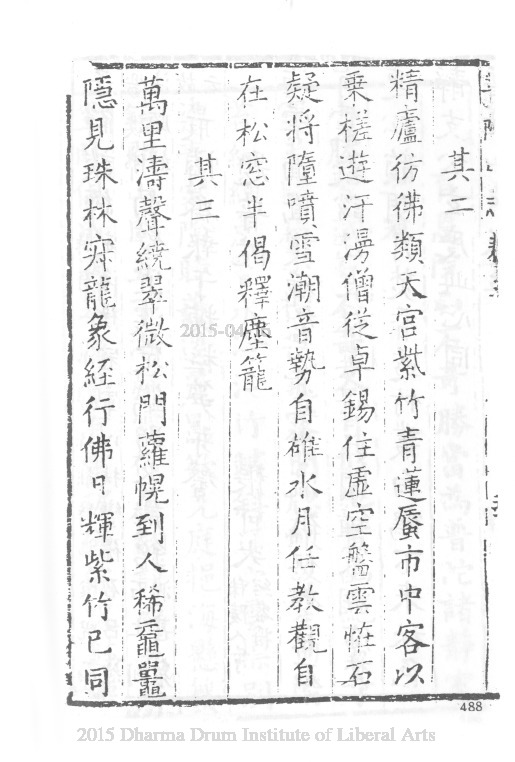 其二
精廬彷彿類天宮紫竹青蓮蜃市中客以
乗槎遊汗漫僧從卓錫住虛空盤雲恠石
疑將墮噴雪潮音勢自雄水月任教觀自
在松窓半偈釋塵籠
其三
萬里濤聲繞翠微松門蘿幌到人稀黿鼉
隱見珠林穽龍象経行佛日輝紫竹已同
2015-04
488
2015 Dharma Drum Institute of Liberal Arts